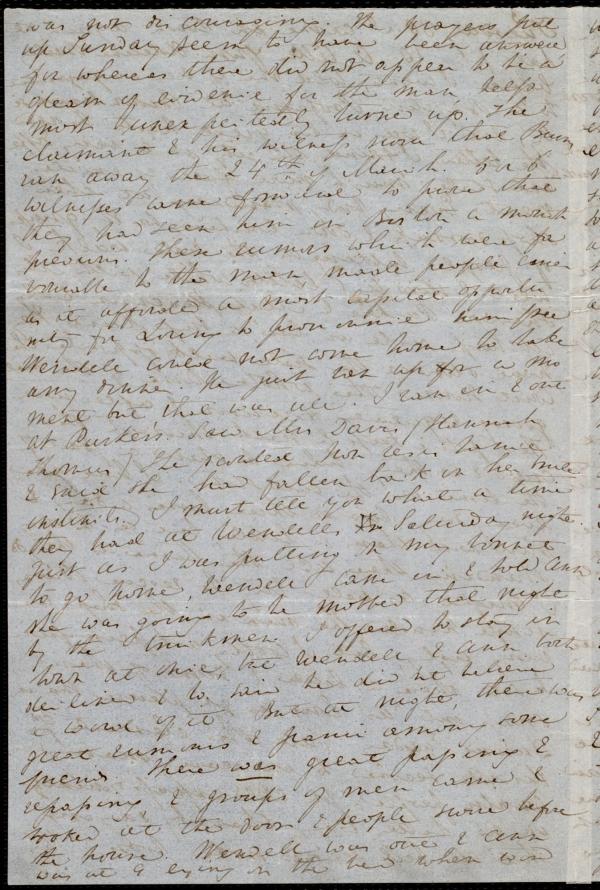 was not discouraging. The prayers put
up Sunday seem to have been answered
for whereas there did not appear to be a
gleam of evidence for the man, help
most unexpectedly turned up. The
claimant & his witness swore that Burns
ran away the 24th of March. 5 or 6
witnesses came forward to prove that
they had seen him in Boston a month
previous. These rumors which were fa
vorable to the man, made people
as it afforded a most capital opportu
nity for Loring to pronounce him free
Wendell could not come home to take
any dinner. He just ran up for a mo
ment but that was all. I ran in & out
at Parker's. Saw Mrs Davis (Hannah
Thomas) She scouted non resistance
& said she had fallen back on her brute
instincts. I must tell you what a time
they had at Wendells Saturday night.
Just as I was putting on my bonnet
to go home, Wendell came in & told Ann
she was going to be mobbed that night
by the truckmen I offered to stay in
town at once, but Wendell & Ann both
declined & W. said he did not believe
a word of it. But at night, there was
great rumors & panic among some
friends. There was great passing &
repassing & groups of men came &
looked at the door & people swore before
the house. Wendell was out & Ann
was at 9 on the bed when